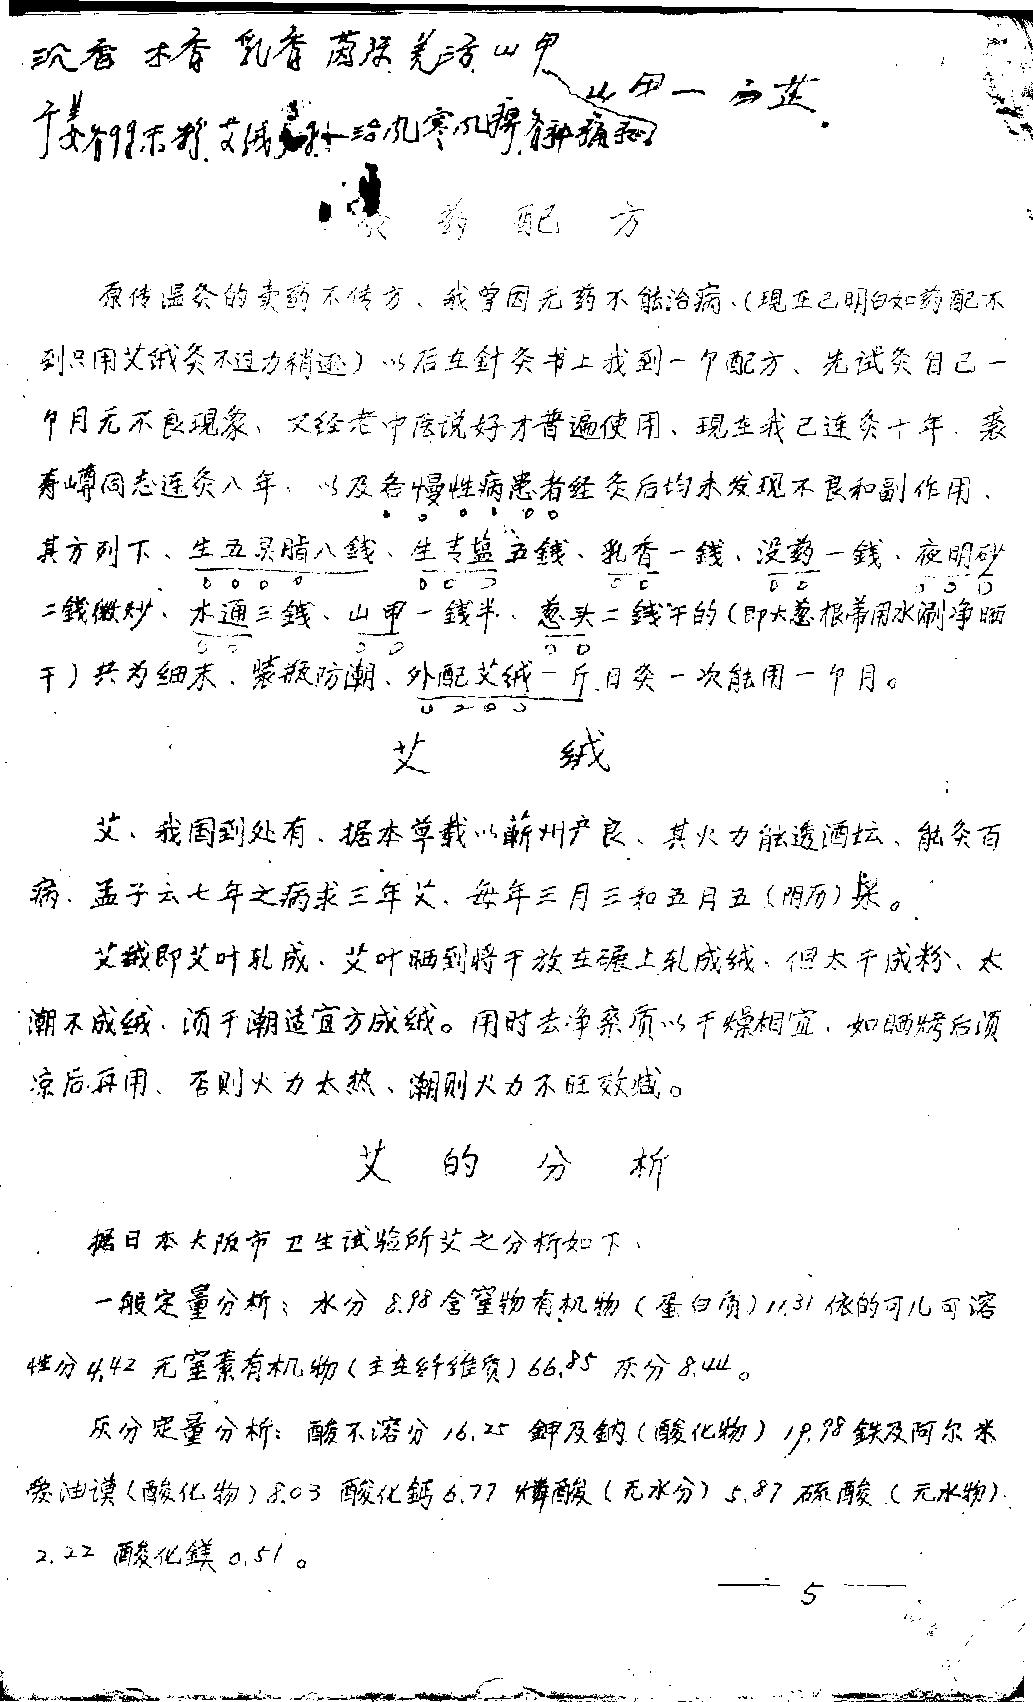 沉香 木香 乳香 茵陈 羌活 山甲
山甲一白芷
干姜各99末粉 艾绒 治风寒风痹 各种痛
药配方
原传温灸的卖药不传方、我曾因无药不能治病、(现在已明白如药配不
到只用艾绒灸不过力稍逊)以后在針灸书上找到一个配方、先试灸自己一
个月无不良现象、又经老中医说好才普遍使用、现在我已连灸十年、裘
寿嶟同志连灸八年、以及各慢性病患者经灸后均未发现不良和副作用、
其方列下、生五灵脂八錢、生青盐五錢、乳香一錢、没药一錢、夜明砂
二錢微炒、木通三錢、山甲一錢半、葱头二錢干的(即大葱根蒂用水涮净晒
干)共为细末、装瓶防潮、外配艾绒一斤、日灸一次能用一个月。
艾绒
艾、我国到处有、据本草载以蘄州产良、其火力能透酒坛、能灸百
病、孟子云七年之病求三年艾、每年三月三和五月五(阴历)采。
艾绒即艾叶轧成、艾叶晒到将干放在碾上轧成绒、但太干成粉、太
潮不成绒、须干潮适宜方成绒。用时去净杂质以干燥相宜、如晒烤后须
凉后再用、否则火力太热、潮则火力不旺效减。
艾的分析
据日本大阪市卫生试验所艾之分析如下、
一般定量分析：水分 8.98 含窒物有机物(蛋白质)11.31 依的可儿可溶
性分 4.42 无窒素有机物(主在纤维质)66.85 灰分 8.44。
灰分定量分析：酸不溶分 16.25 鉀及鈉(酸化物)19.98 鉄及阿尔米
愛油谟(酸化物)8.03 酸化鈣 6.77 燐酸(无水分)5.87 硫酸(无水物)
2.22 酸化鎂 0.51。
5